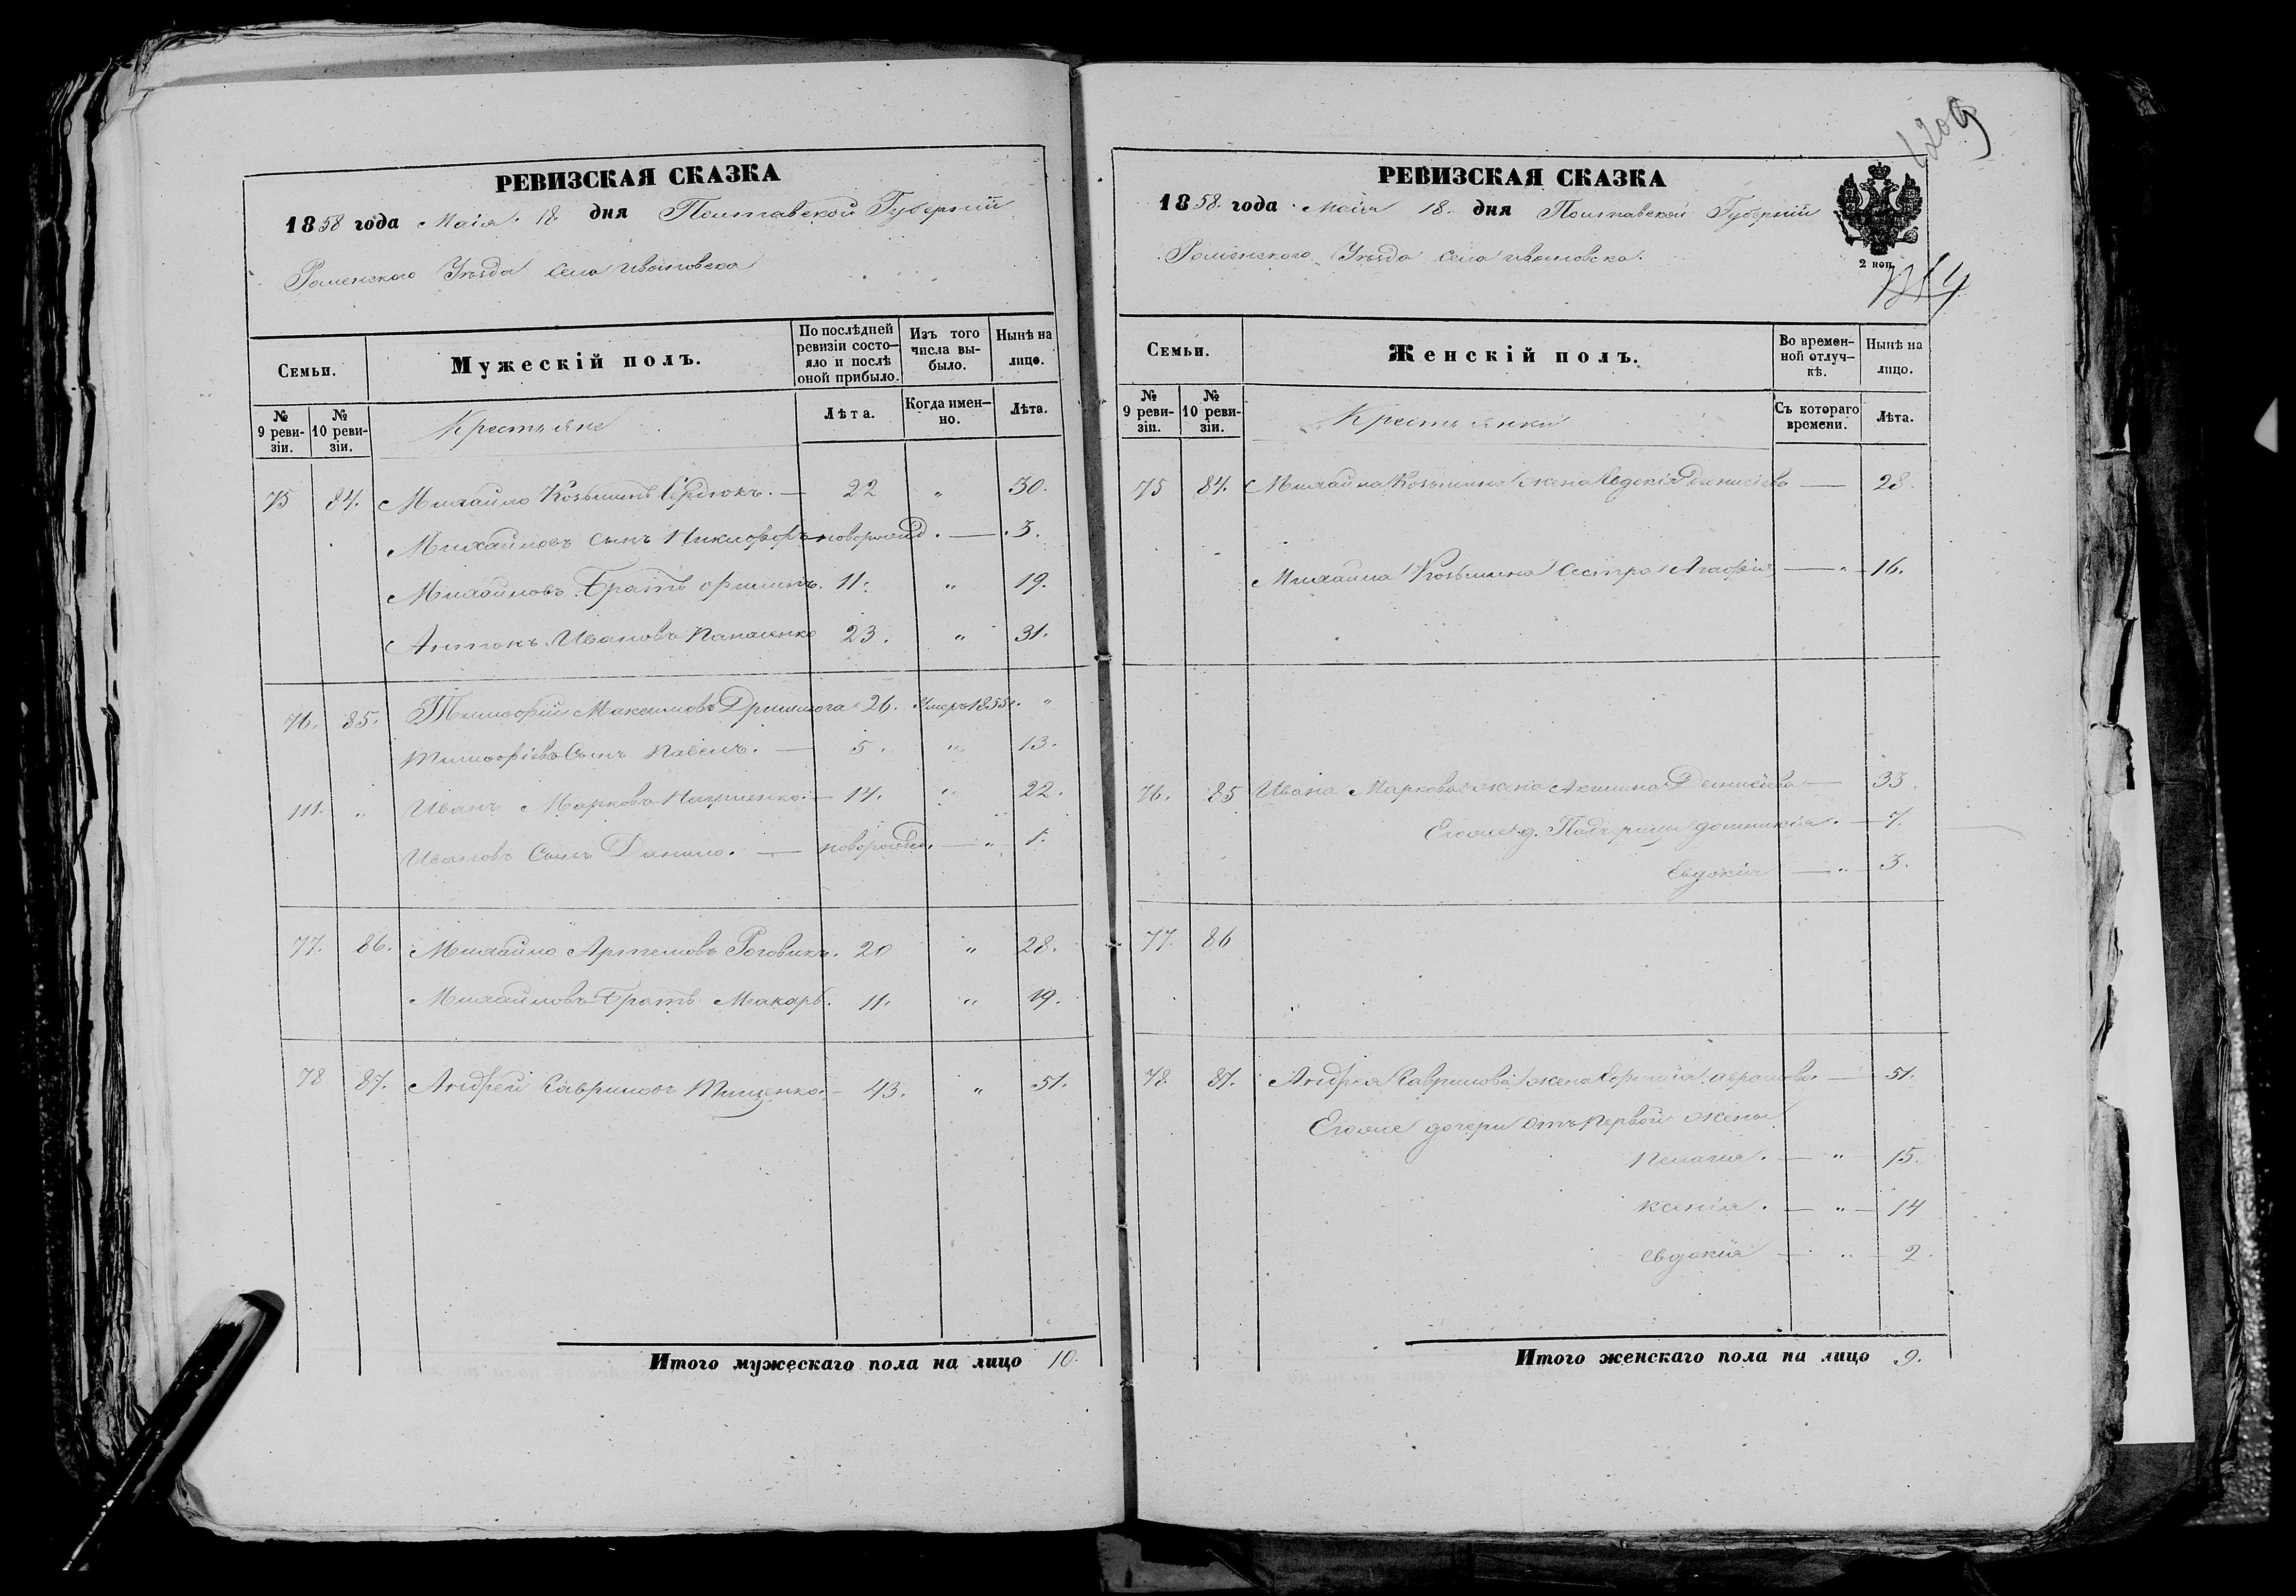 РЕВИЗСКАЯ СКАЗКА
1858 года Маія 18 дня Полтавской Губерніи
Роменского Уѣзда села Ивановска
Семьи.
Мужескій полъ.
По послѣдней ревизіи состо-яло и послѣ оной прибыло.
Изъ того числа вы-было.
Нынѣ на лицо.
№ 9 реви-зіи.
№ 10 реви-зіи.
Крестьяне
Лѣта.
Когда имен-но.
Лѣта.
75 84. Михайло Козьминъ Сердюкъ. — 22 „ 30.
Михайловъ сынъ Никифоръ новорожд. — 3.
Михайловъ Братъ Филипъ. 11. „ 19.
Антонъ Ивановъ Панасенко 23. „ 31.
76. 85. Тимофій Максимовъ 26. Умеръ 1855. „
Тимофіевъ Сынъ Павелъ. — 5. „ 13.
111. „ Иванъ Марковъ — 14. „ 22.
Ивановъ Сынъ Данило. — новорожд. — „ 1.
77. 86. Михайло Артемовъ Роговикъ. 20 „ 28.
Михайловъ Братъ Макаръ. 11. „ 19.
78 87. Андрей Гавриловъ Тищенко. — 43. „ 51.
Итого мужескаго пола на лицо 10.
1209
РЕВИЗСКАЯ СКАЗКА
1858. года Маія 18. дня Полтавской Губерніи
Роменского Уѣзда села Ивановска.
2 коп.
Семьи.
Женскій полъ.
Во времен-ной отлуч-кѣ.
Нынѣ на лицо.
№ 9 реви-зіи.
№ 10 реви-зіи.
Крестьянки
Съ котораго времени.
Лѣта.
75 84. Михайла Козьмина жена Евдокія Денисіева — 28.
Михайла Козьмина сестра Агафія — „ — 16.
76. 85 Ивана Маркова жена Акилина Денисіева — 33.
Егоже д. Падчерицы — 7.
Евдокія — „ — 3.
77. 86
78. 87. Андрея Гаврилова жена — 51.
Егоже дочери отъ первой жены
Пелагія. — „ — 15.
Ксенія. — „ — 14
Евдокія — „ — 2.
Итого женскаго пола на лицо 9.